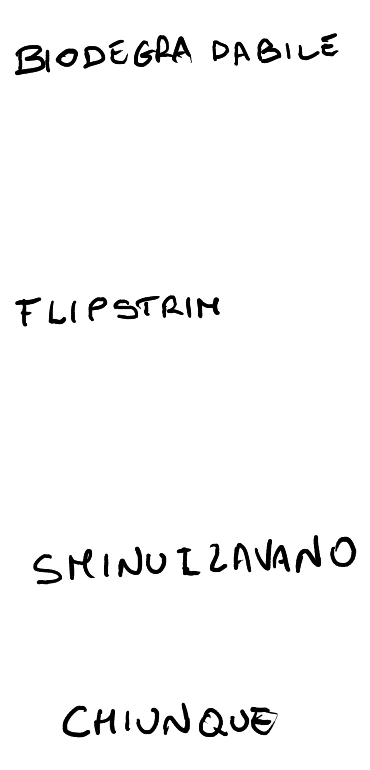 BIODEGRA DABILE
FLIPSTRIM
SMINUIZAVANO
CHIUNQUE